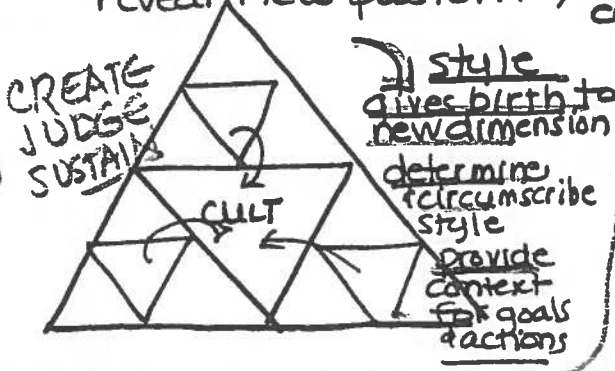 reveal new patterns
CREATE
JUDGE
SUSTAIN
CULT
style
gives birth to
new dimension
determine
& circumscribe
style
provide
context
for goals
& actions